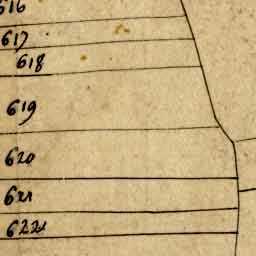 616
617
618
619
620
621
622